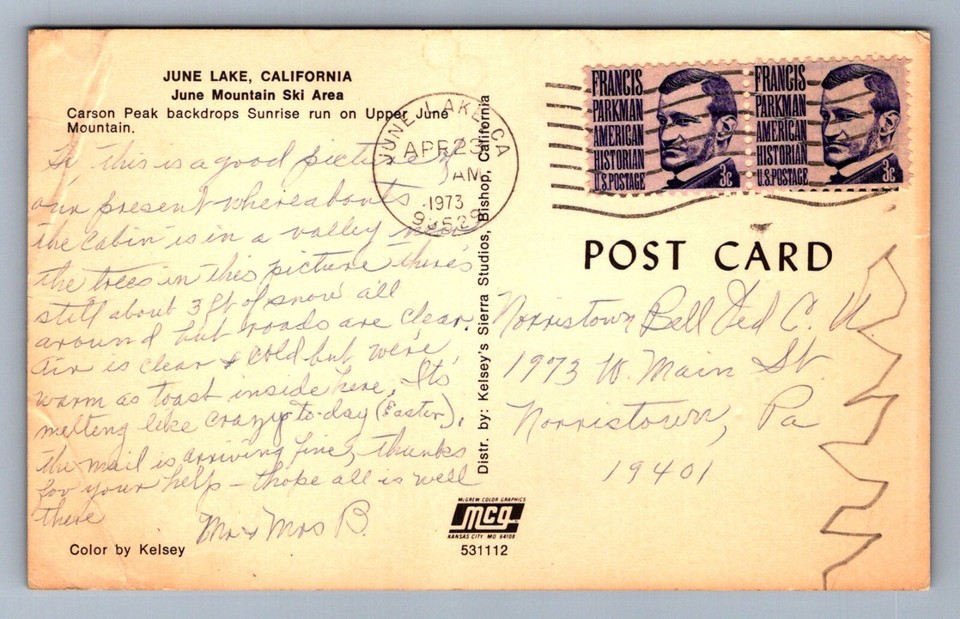 JUNE LAKE, CALIFORNIA
June Mountain Ski Area
Carson Peak backdrops Sunrise run on Upper June
Mountain.
Hi this is a good picture of
our present whereabouts
the cabin is in a valley near
the trees in this picture there's
still about 3 ft of snow all
around but roads are clear.
Air is clear & cold but we're
warm as toast inside here, Its
melting like crazy to-day (Easter),
the mail is arriving fine, thanks
for your help - hope all is well
there
Mr & Mrs B.
Color by Kelsey
Distr. by: Kelsey's Sierra Studios, Bishop, California
McGREW COLOR GRAPHICS
mcg
KANSAS CITY, MO 64108
531112
JUNE LAKE, CA
APR 23
AM
1973
93529
FRANCIS
PARKMAN
AMERICAN
HISTORIAN
U.S. POSTAGE 3c
FRANCIS
PARKMAN
AMERICAN
HISTORIAN
U.S. POSTAGE 3c
POST CARD
Norristown Bell Fed C. U.
1973 W. Main St
Norristown, Pa
19401